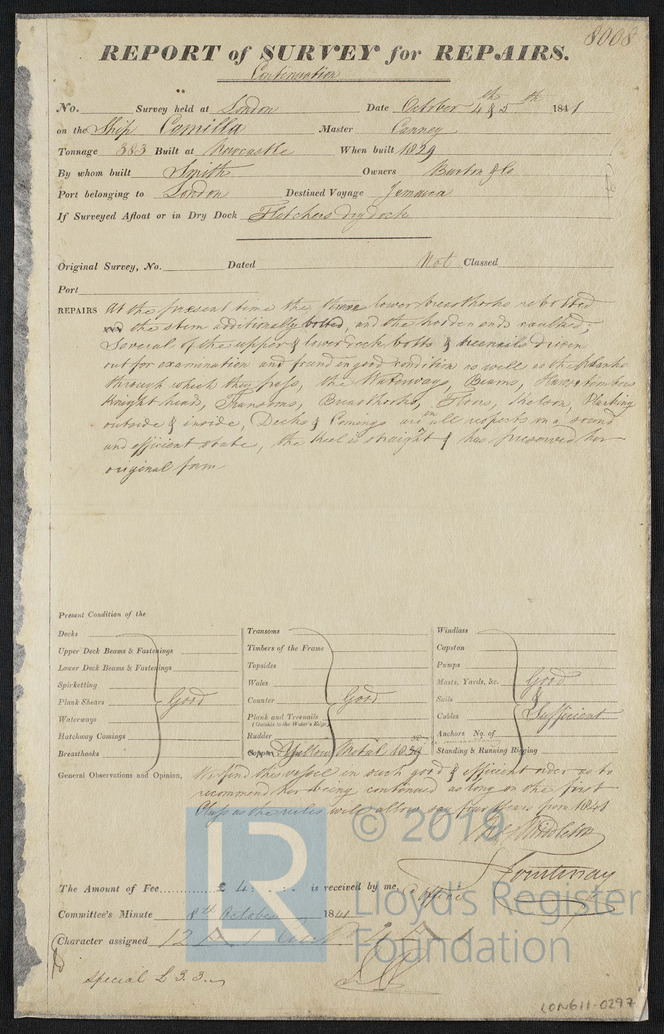 8008
REPORT of SURVEY for REPAIRS.
Continuation
No. Survey held at London Date October 4th & 5th 1841
on the Ship Camilla Master Canney
Tonnage 383 Built at Newcastle When built 1829
By whom built Smith Owners Burton & Co
Port belonging to London Destined Voyage Jamaica
If Surveyed Afloat or in Dry Dock Fletchers dry dock
Original Survey, No. Dated Not Classed
Port
REPAIRS At the present time the three lower breasthooks rebolted
and the stem additionally bolted, and the hooden ends caulked;
Several of the upper & lower deck bolts & treenails driven
out for examination and found in good condition as well as the Planks
through which they pass, the Waterways, Beams, Hawse timbers
Knight heads, Transoms, Breasthooks, Floors, Keelson, Planking
outside & inside, Decks & Comings are in all respects in a sound
and efficient state, the keel is straight & has preserved her
original form
Present Condition of the
Decks
Upper Deck Beams & Fastenings
Lower Deck Beams & Fastenings
Spirketting
Plank Shears
Waterways
Hatchway Comings
Breasthooks
Good
Transoms
Timbers of the Frame
Topsides
Wales
Counter
Plank and Treenails
(Outside to the Water's Edge)
Rudder
Copper Yellow Metal 1839
Good
Windlass
Capston
Pumps
Masts, Yards, &c.
Sails
Cables
Anchors No. of
Standing & Running Rigging
Good
&
Sufficient
General Observations and Opinion, We find this vessel in such good & efficient order as to
recommend her being continued as long on the first
Class as the rules will allow say four years from 1841
Middleton
Courtenay
The Amount of Fee £ 4 : . : . is received by me, Office
Committee's Minute 8th October 1841
Character assigned 12 A 1
Special £ 3.3.-
© 2019
LR
Lloyd's Register
Foundation
LON611-0297